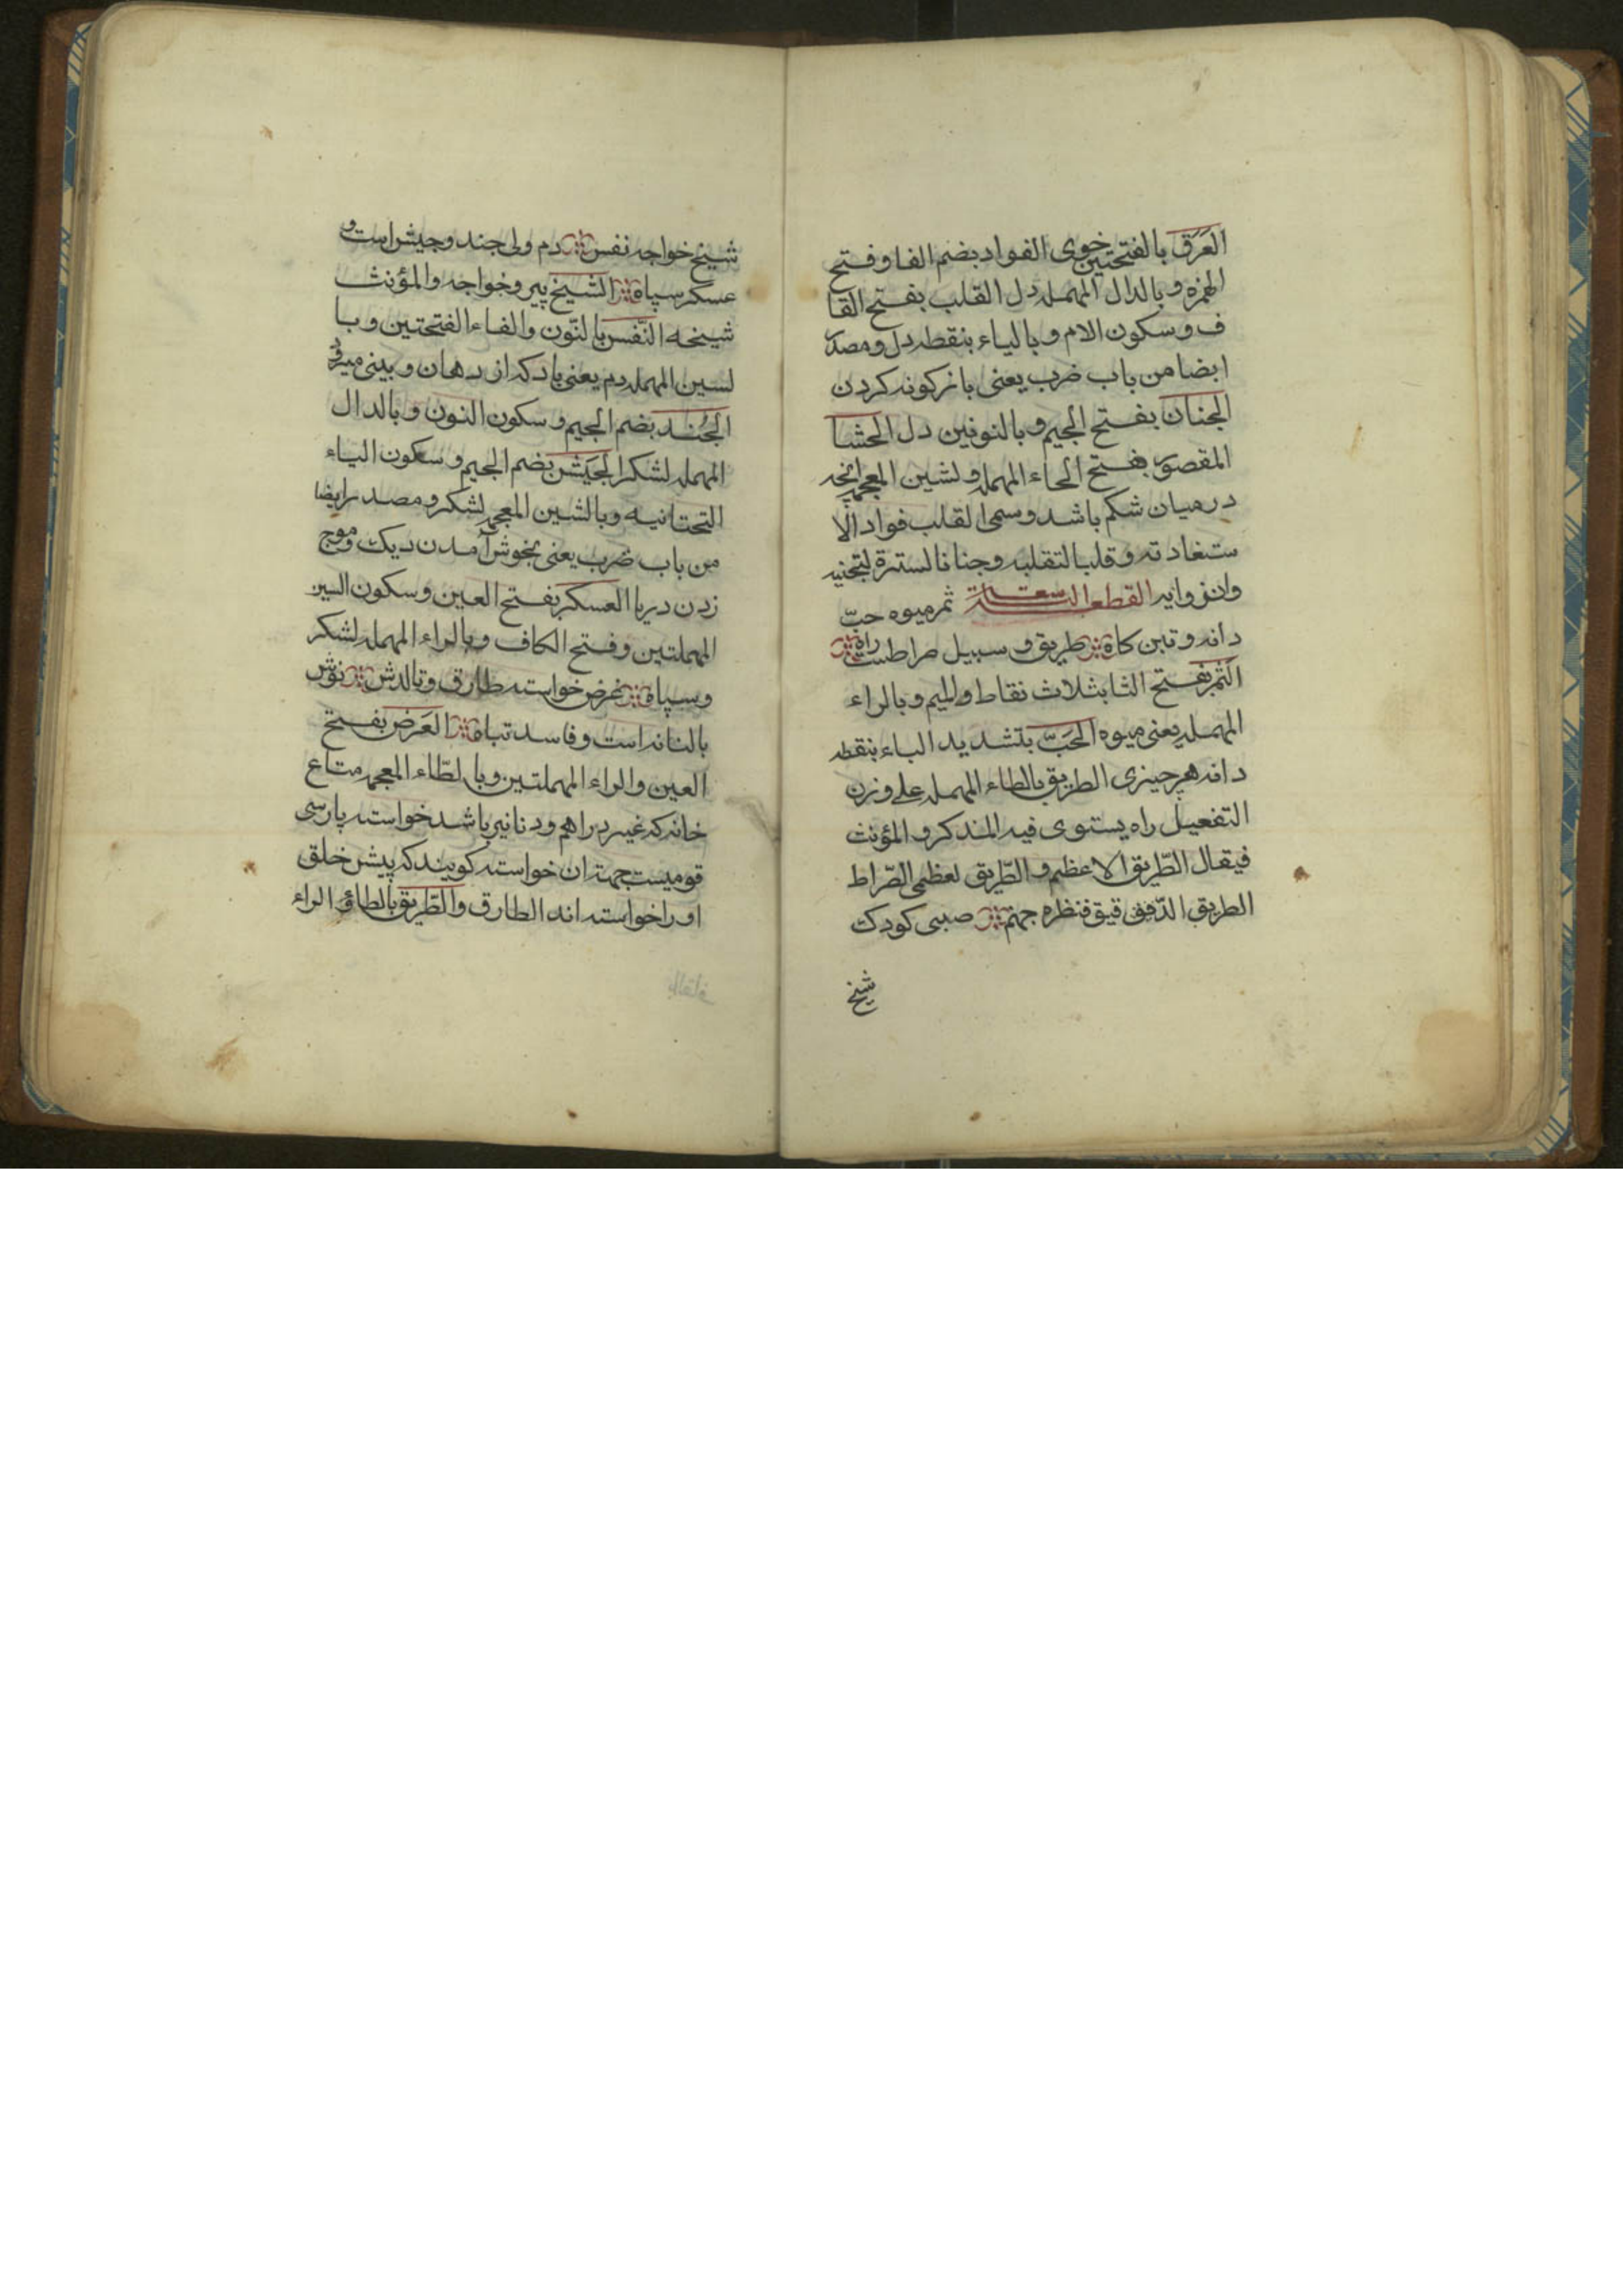 العَرَق بالفتحتين خوى الفواد بضم الفا و فتح
الهمزه و بالدال المهمله دل القلب بفتح القا
ف و سكون الام و بالياء بنقطه دل و مصدر
ايضا من باب ضرب يعنى بازكونه كردن
الجنان بفتح الجيم و بالنونين دل الحشا
المقصور بفتح الحاء المهمله ولشين المعجمه انچه
درميان شكم باشد و سمى القلب فواد الا
ستفادته و قلبا لتقلبه و جنانا لسترة لتجنيه
القطعه التسعة ثمر ميوه حبّ
دانه و تبن كاه طريق و سبيل صراطست راه
الثمر بفتح الثا بثلاث نقاط والميم و بالراء
المهمله يعنى ميوه الحَبّ بتشديد الباء بنقطه
دانه هر چيزى الطريق بالطاء المهمله على وزن
التفعيل راه يستوى فيه المذكر و المؤنث
فيقال الطّريق الاعظم و الطّريق لعظمى الصّراط
الطريق الدّقيق قنظره جهنم صبى كودك
شيخ
شيخ خواجه نفس دم ولى جند و جيش است و
عسكر سپاه الشيخ پير و خواجه و المؤنث
شيخه النّفس بالنّون و الفاء الفتحتين و با
لسين المهمله دم يعنى باد كه از دهان و بينى ميرود
الجُند بضم الجيم و سكون النون و بالدال
المهمله لشكر الجَيش بضم الجيم و سكون الياء
التحتانيه و بالشين المعجمه لشكر و مصدر ايضا
من باب ضرب يعنى بجوش آمدن ديك و موج
زدن دريا العسكر بفتح العين و سكون السين
المهملتين و فتح الكاف و بالراء المهمله لشكر
و سپاه عرض خواسته طارق و تالدش نوش
بالنانه است و فاسد تباه العَرَض بفتح
العين و الراء المهملتين و بالطّاء المعجمه متاع
خانه كه غير دراهم و دنانير باشد خواسته پارسى
قوميست جهة ان خواسته كويند كه پيش خلق
او را خواسته اند الطارق و الطّريق بالطاؤ الراء